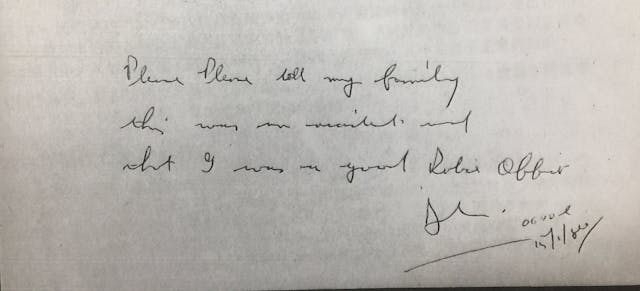 Please Please tell my family
this was an accident and
that I was a good Police Officer